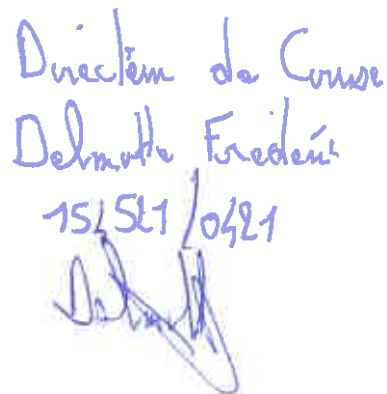 Directeur de Course
Delmotte Frederic
15/521/0421